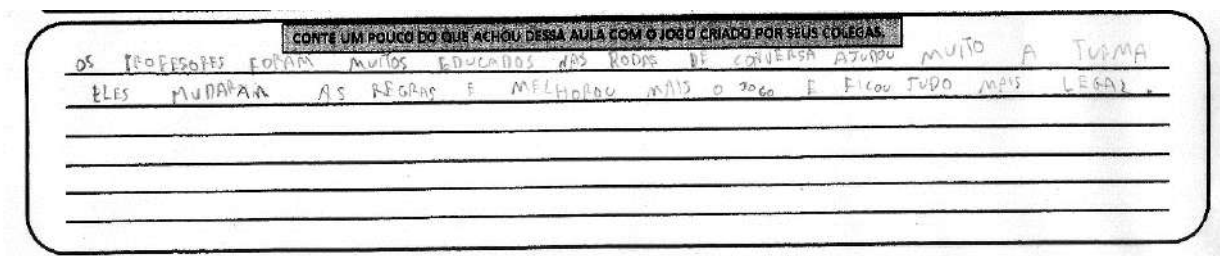 CONTE UM POUCO DO QUE ACHOU DESSA AULA COM O JOGO CRIADO POR SEUS COLEGAS.
OS PROFESSORES FORAM MUITOS EDUCADOS NAS RODAS DE CONVERSA AJUDOU MUITO A TURMA
ELES MUDARAM AS REGRAS E MELHOROU MAIS O JOGO E FICOU TUDO MAIS LEGAL.